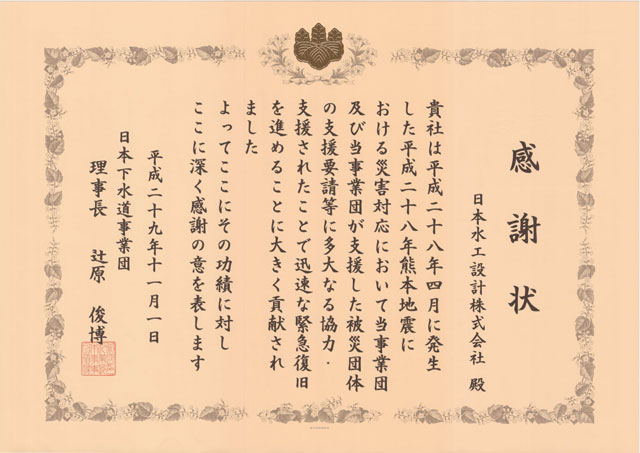 感謝状
日本水工設計株式会社 殿
貴社は平成二十八年四月に発生
した平成二十八年熊本地震に
おける災害対応において当事業団
及び当事業団が支援した被災団体
の支援要請等に多大なる協力・
支援されたことで迅速な緊急復旧
を進めることに大きく貢献され
ました
よってここにその功績に対し
ここに深く感謝の意を表します
平成二十九年十一月一日
日本下水道事業団
理事長 辻原 俊博